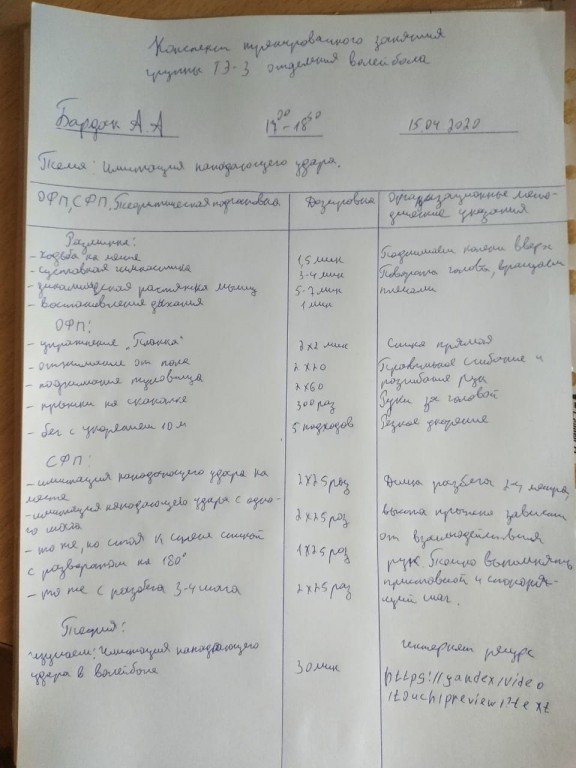 Конспект тренировочного занятия
группы ТЭ-3 отделения волейбола
Бардак А.А 17³⁰-18³⁰ 15.04 2020
Тема: Имитация нападающего удара.
ОФП, СФП, Теоретическая подготовка Дозировка Организационные мето-
дические указания
Разминка:
- ходьба на месте 1,5 мин Поднимаем колени вверх
- суставная гимнастика 3-4 мин Повороты головы, вращаем
- динамическая растяжка мышц 5-7 мин плечами
- восстановление дыхания 1 мин
ОФП:
- упражнение "Планка" 2х2 мин Спина прямая
- отжимание от пола 2х20 Правильное сгибание и
разгибание рук
- поднимания туловища 2х60 Руки за головой
- прыжки на скакалке 300 раз
- бег с ускорением 10 м 5 подходов Резкое ускорение
СФП:
- имитация нападающего удара на 2х25 раз Длина разбега 2-4 метра,
месте
- имитация нападающего удара с одно- 2х25 раз высота прыжка зависит
го шага от взаимодействия
- то же, но стоя к стене спиной 1х25 раз рук. Важно выполнять
с разворотом на 180°
- то же с разбега 3-4 шага 2х25 раз приставной и стопоря-
щий шаг.
Теория:
изучаем: Имитация нападающего интернет ресурс
удара в волейболе 30 мин https://yandex/video
/touch/preview/?text